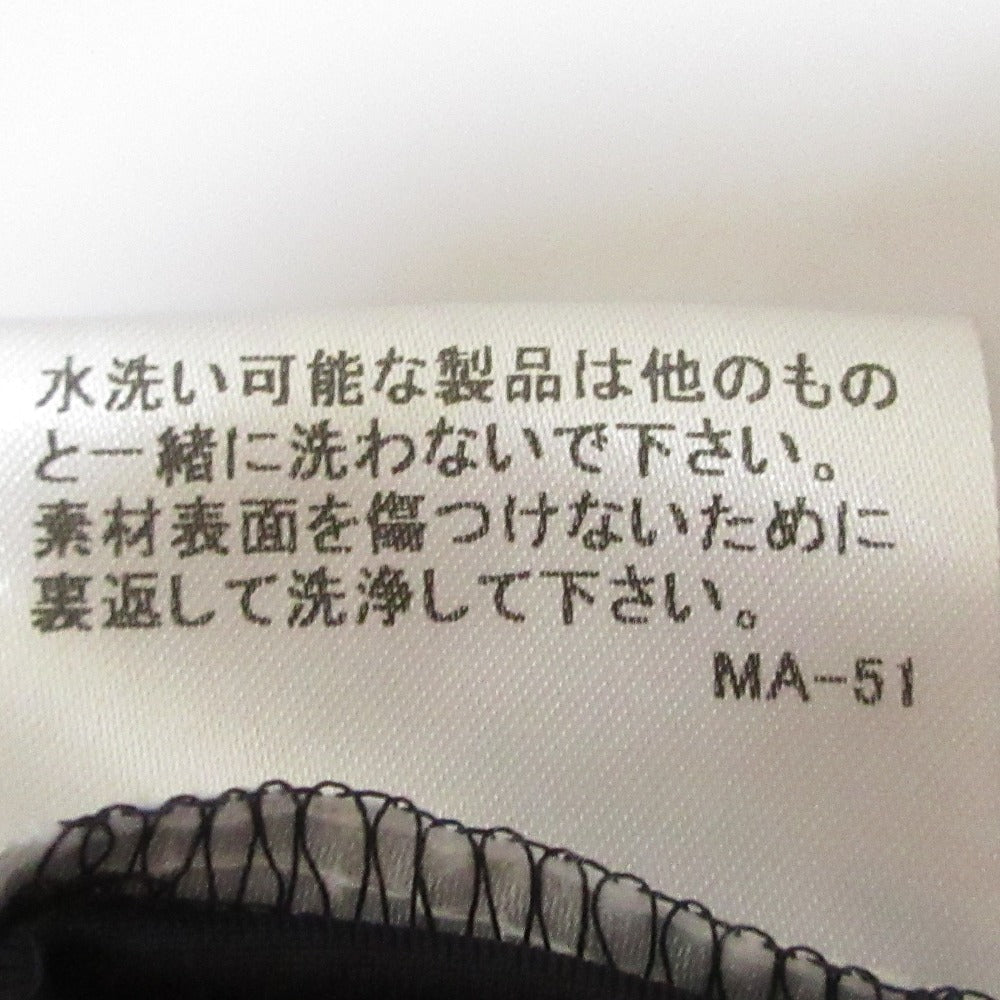 水洗い可能な製品は他のもの
と一緒に洗わないで下さい。
素材表面を傷つけないために
裏返して洗浄して下さい。
MA-51